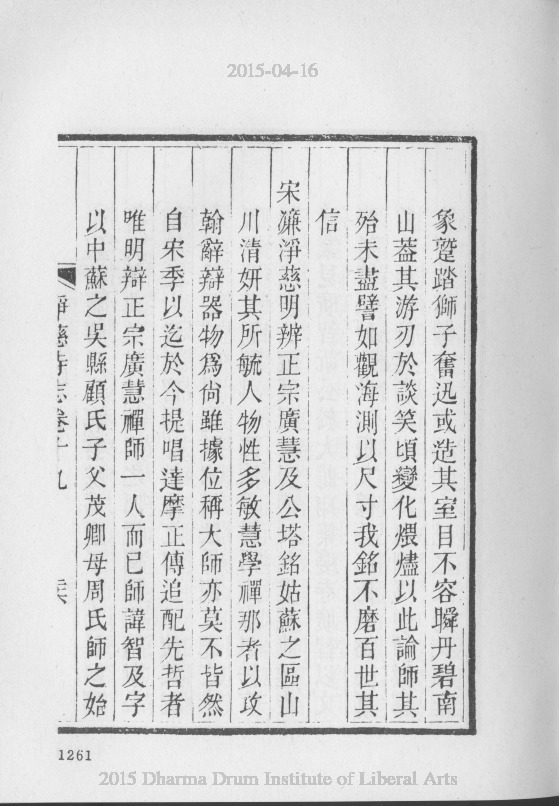 2015-04-16
象蹵踏獅子奮迅或造其室目不容瞬丹碧南
山葢其游刃於談笑頃變化煨燼以此論師其
殆未盡譬如觀海測以尺寸我銘不磨百世其
信
宋濂淨慈明辨正宗廣慧及公塔銘姑蘇之區山
川清妍其所毓人物性多敏慧學禪那者以攻
翰辭辯器物爲尙雖據位稱大師亦莫不皆然
自宋季以迄於今提唱達摩正傳追配先哲者
唯明辯正宗廣慧禪師一人而已師諱智及字
以中蘇之吳縣顧氏子父茂卿母周氏師之始
淨慈寺志卷十九
1261
2015 Dharma Drum Institute of Liberal Arts